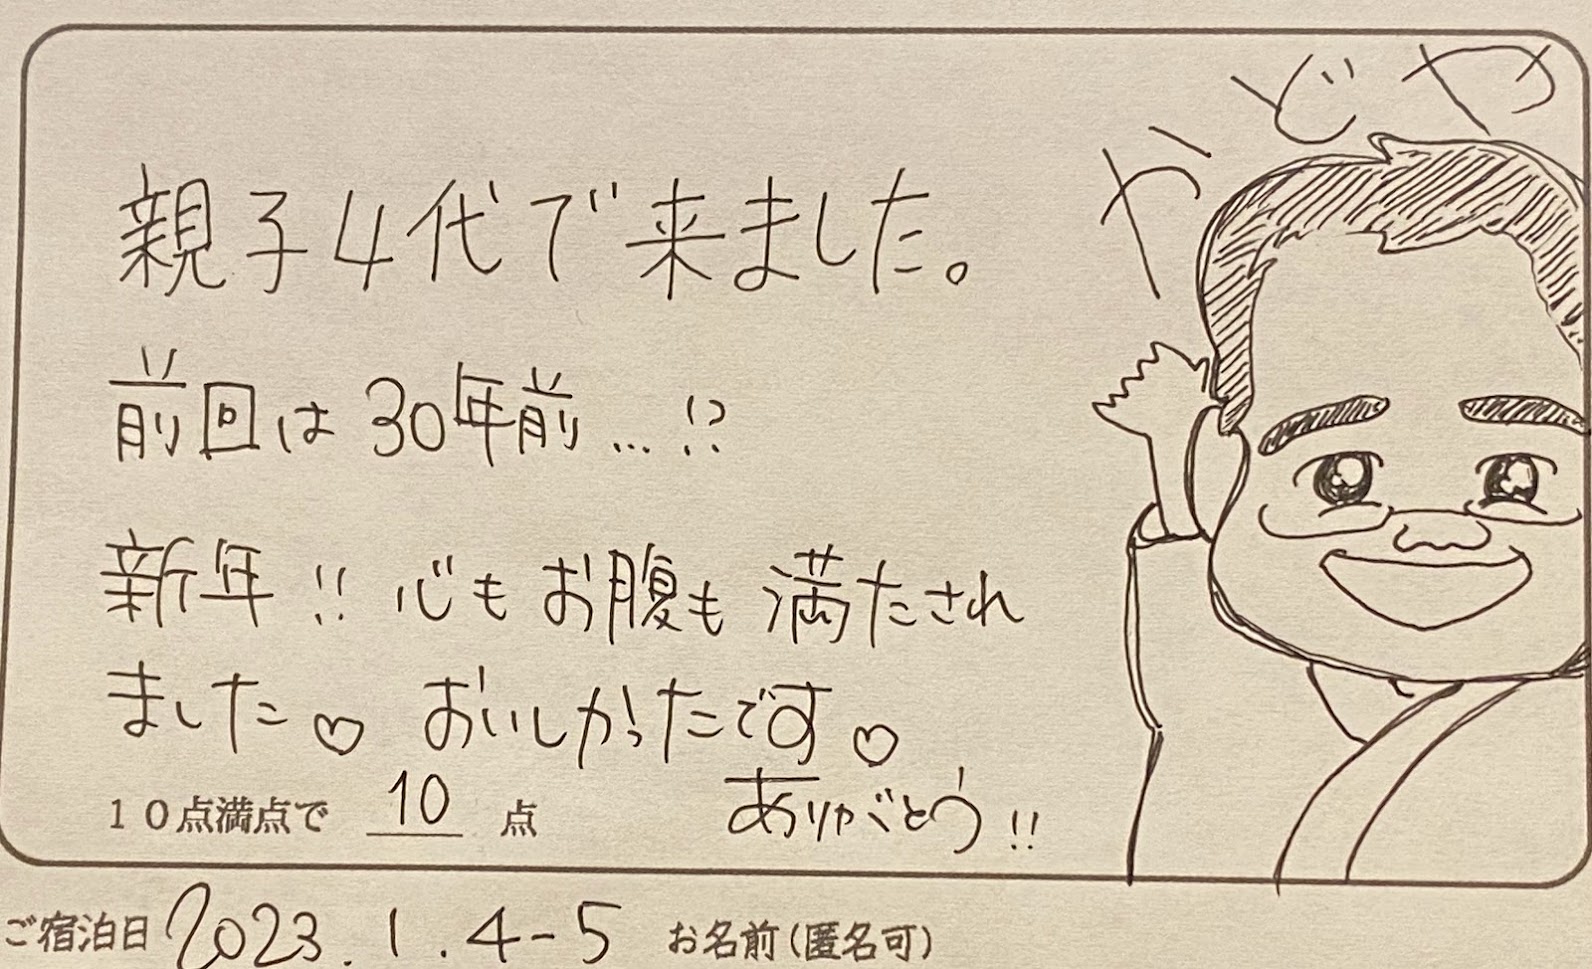 かどや
親子4代で来ました。
前回は30年前…!?
新年!! 心もお腹も満たされ
ました♡ おいしかったです♡
10点満点で 10 点
ありがとう!!
ご宿泊日 2023.1.4-5 お名前(匿名可)